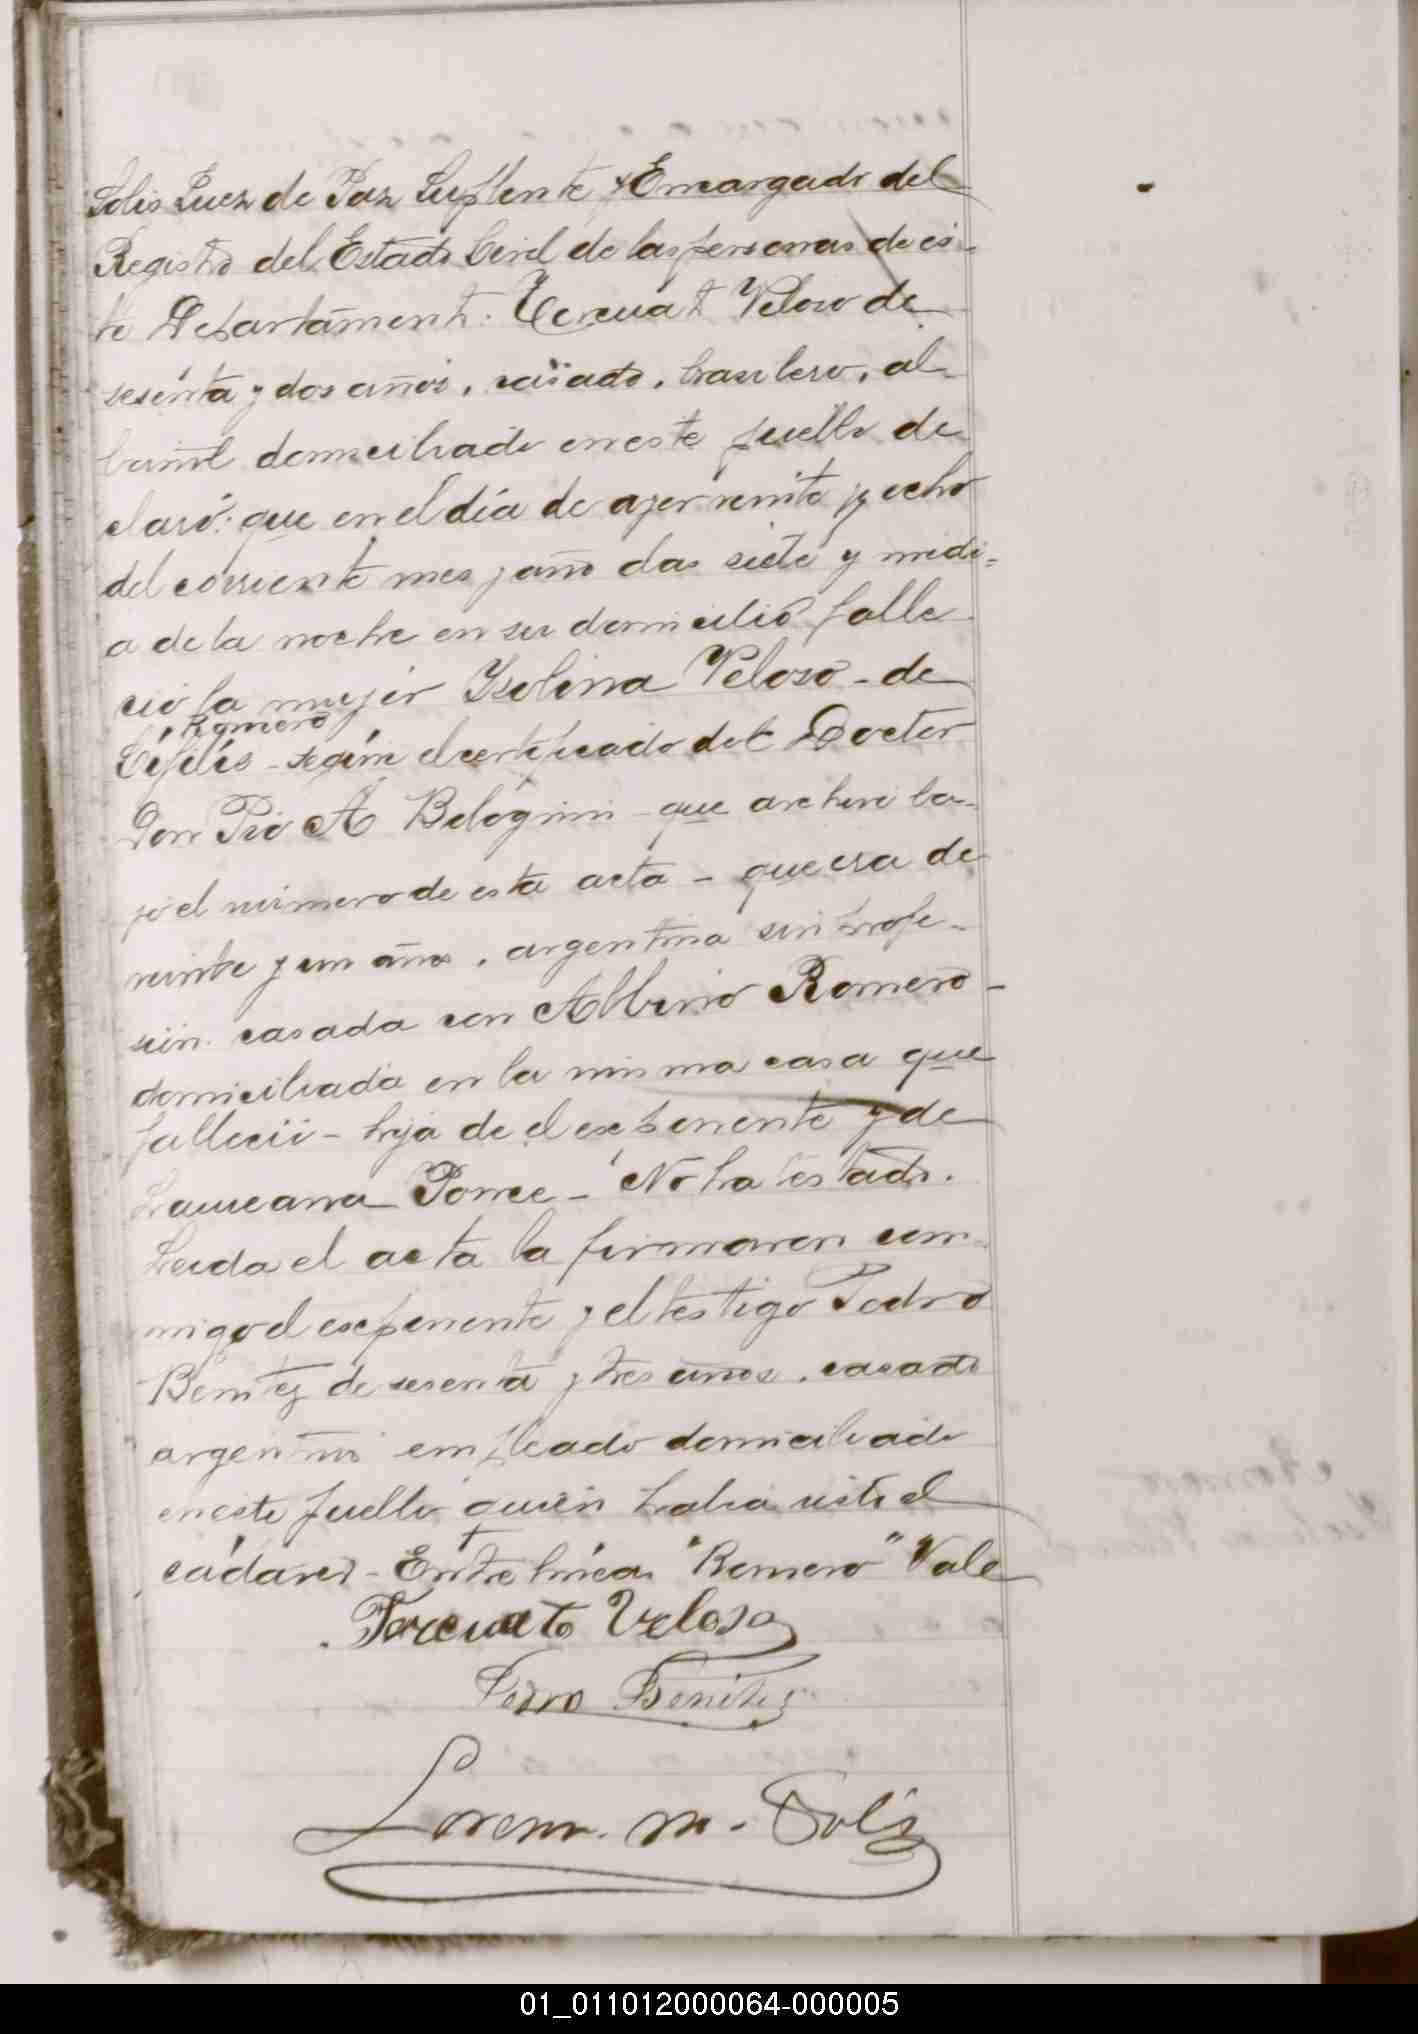 Solis Juez de Paz Suplente y Encargado del
Registro del Estado Civil de las personas de es-
te Departamento: Torcuato Veloso de
sesenta y dos años, casado, brasilero, al-
bañil domiciliado en este pueblo de
claró: que en el día de ayer veinte y ocho
del corriente mes y año á las siete y medi-
a de la noche en su domicilio falle
ció la mujer Ysolina Veloso - de
Romero
Sífilis - según el certificado del Doctor
Don Pio A Belogini - que archivé ba-
jo el número de esta acta - que era de
veinte y un años, argentina sin profe-
sión. casada con Albino Romero -
domiciliada en la misma casa que
falleció - hija de el exponente y de
Laureana Ponce - No ha testado.
Leida el acta la firmaron con-
migo el exponente y el testigo Pedro
Benitez de sesenta y tres años, casado
argentino empleado domiciliado
en este pueblo quien habia visto el
cadáver - Entre líneas "Romero" Vale
Torcuato Veloso
Pedro Benitez
Lorenzo M. Solis
01_011012000064-000005